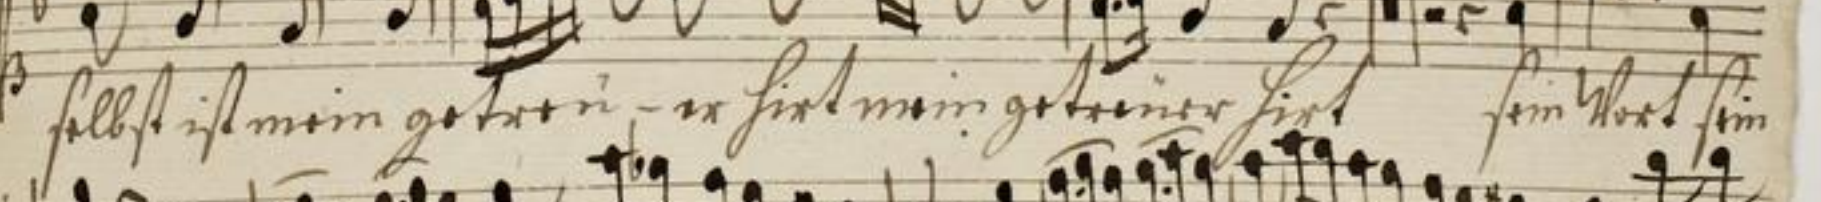 selbst ist mein getreü-er Hirt mein getreüer Hirt sein Wort sein